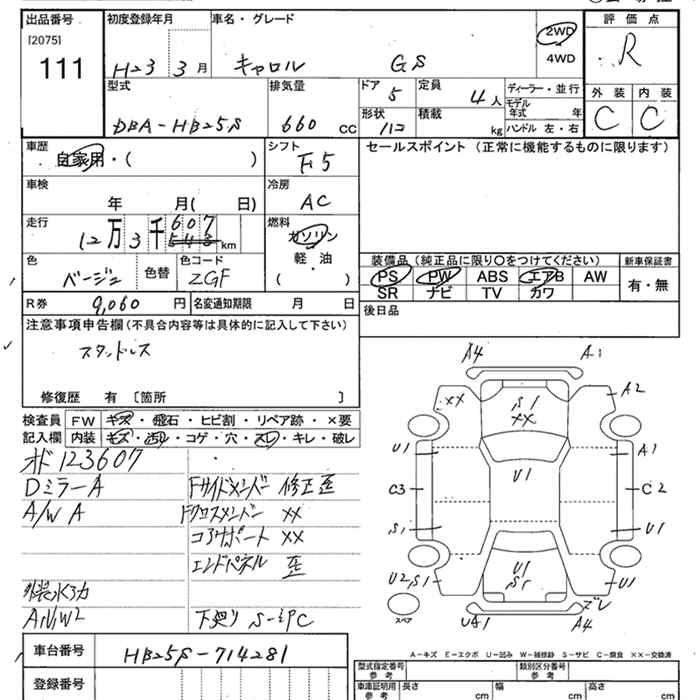 出品番号 初度登録年月 車名・グレード 評価点
[2075]
111 H23 3月 キャロル GS 2WD 4WD R
型式 排気量 ドア 定員 ディーラー・並行 外装 内装
DBA-HB25S 660 cc 5 4人 モデル年式 年 C C
形状 積載 kg ハンドル 左・右
車歴 シフト セールスポイント (正常に機能するものに限ります)
自家用・( ) F5
車検 冷房
年 月( 日) AC
走行 燃料
12万3千607 543 km ガソリン
軽・油
( )
色 色替 色コード
ベージュ ZGF
装備品 (純正品に限り○をつけてください) 新車保証書
PS PW ABS エアB AW 有・無
SR ナビ TV カワ
R券 9,060円 名変通知期限 月 日 後日品
注意事項申告欄(不具合内容等は具体的に記入して下さい)
スタッドレス
修復歴 有 〔箇所 〕
検査員 FW キズ・飛石・ヒビ割・リペア跡・×要
記入欄 内装 キズ・汚れ・コゲ・穴・スレ・キレ・破レ
オド123607
DミラーA Fサイドメンバー 修正歪
A/W A Fクロスメンバー ××
コアサポート ××
エンドパネル 歪
A1\W2 下廻り S-中C
A4 A1
×× S1 ×× A2
U1 U1 A1
C3 C2
S1 U1
U2,S1 U1 S1 U1
スペア UA1 A4 ズレ
A-キズ E-エクボ U-凹み W-補修跡 S-サビ C-腐食 ××-交換済
車台番号 HB25S-714281
登録番号
型式指定番号 参考 類別区分番号 参考
車庫証明用 参考 長さ cm 幅 cm 高さ cm